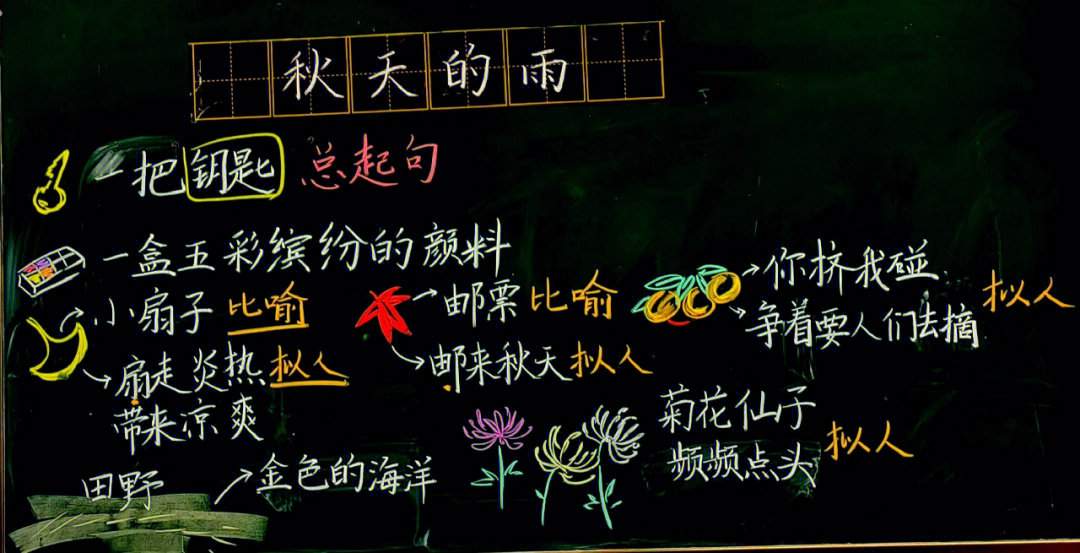 秋天的雨
一把钥匙 总起句
一盒五彩缤纷的颜料
小扇子 比喻
扇走炎热 拟人
带来凉爽
邮票 比喻
邮来秋天 拟人
你挤我碰
争着要人们去摘
拟人
菊花仙子
频频点头
拟人
田野 金色的海洋